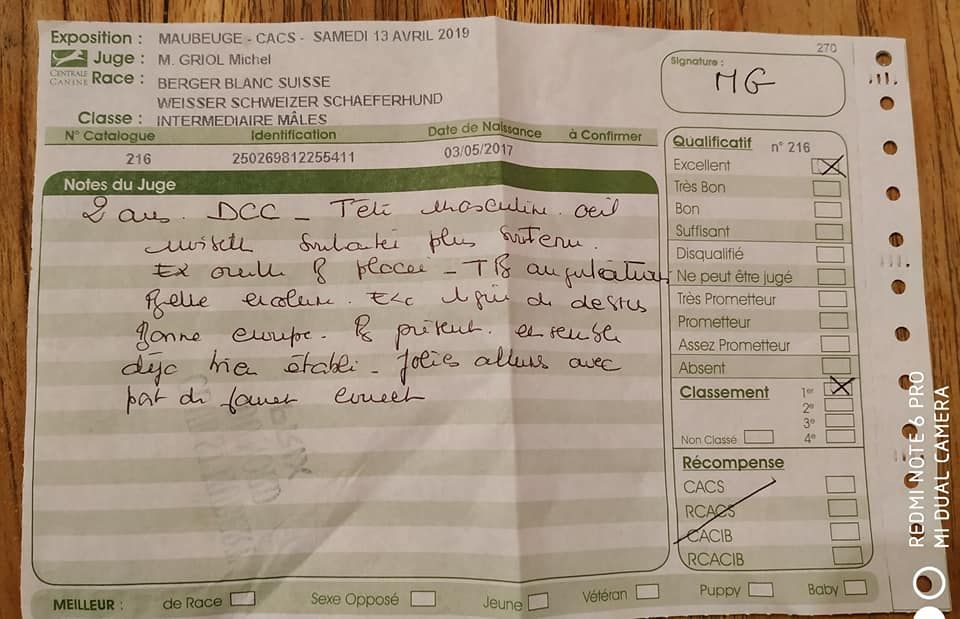 270
Exposition : MAUBEUGE - CACS - SAMEDI 13 AVRIL 2019
Juge : M. GRIOL Michel
CENTRALE CANINE
Race : BERGER BLANC SUISSE
WEISSER SCHWEIZER SCHAEFERHUND
Classe : INTERMEDIAIRE MÂLES
N° Catalogue Identification Date de Naissance à Confirmer
216 250269812255411 03/05/2017
Notes du Juge
2 ans. DCC - Tête masculine. oeil
noisette souhaité plus soutenu.
Ex oreille B placée - TB angulations
Belle encolure. Exc ligne de dessus
Bonne croupe. B présent. ensemble
déjà bien établi - Jolies allures avec
port de fouet correct
Signature :
MG
Qualificatif n° 216
Excellent
Très Bon
Bon
Suffisant
Disqualifié
Ne peut être jugé
Très Prometteur
Prometteur
Assez Prometteur
Absent
Classement 1er
2e
3e
Non Classé 4e
Récompense
CACS
RCACS
CACIB
RCACIB
MEILLEUR : de Race Sexe Opposé Jeune Vétéran Puppy Baby
REDMI NOTE 6 PRO
MI DUAL CAMERA